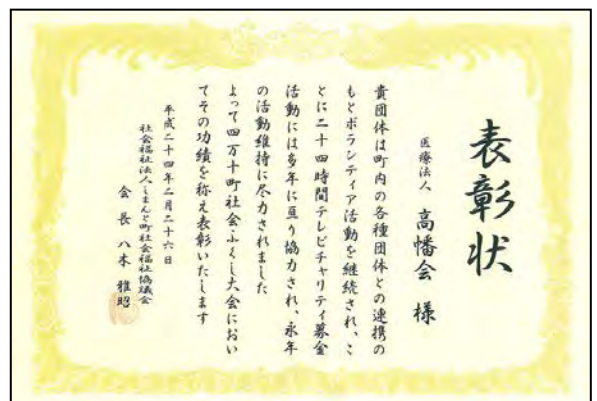 表彰状
医療法人 高幡会 様
貴団体は町内の各種団体との連携の
もとボランティア活動を継続され、こ
とに二十四時間テレビチャリティ募金
活動には多年に亘り協力され、永年
の活動維持に尽力されました
よって四万十町社会ふくし大会におい
てその功績を称え表彰いたします
平成二十四年二月二十六日
社会福祉法人しまんと町社会福祉協議会
会長 八木 雅昭